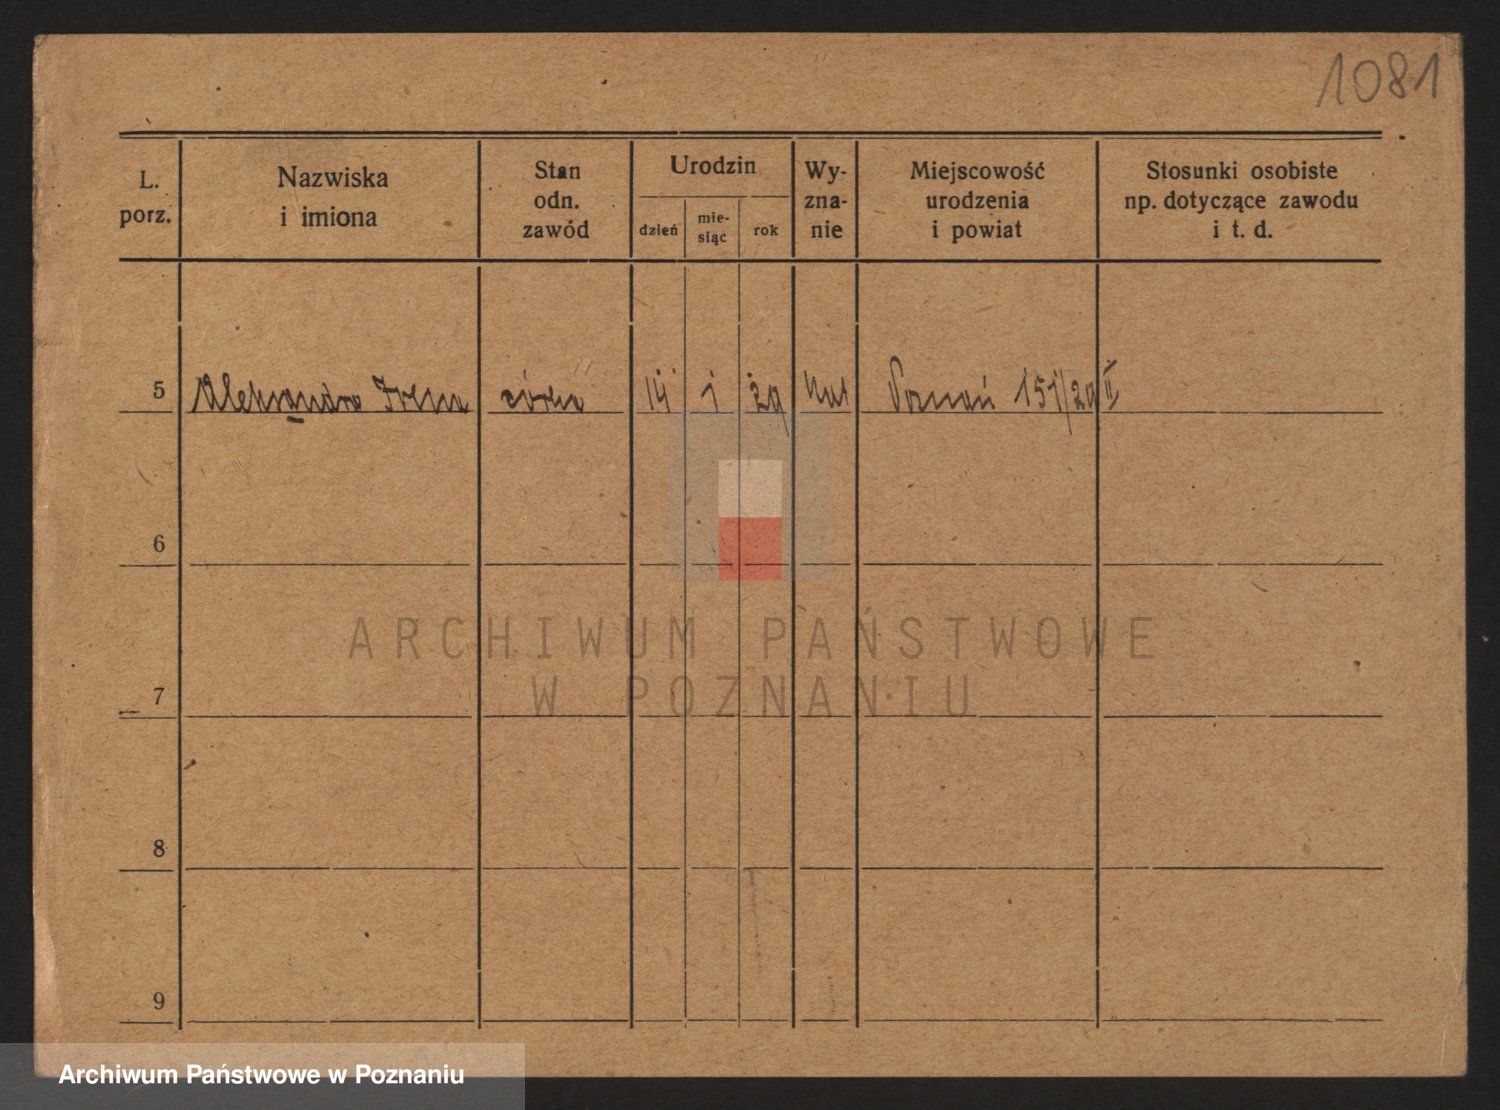 1081
L. porz.
Nazwiska i imiona
Stan odn. zawód
Urodzin
dzień
mie- siąc
rok
Wy- zna- nie
Miejscowość urodzenia i powiat
Stosunki osobiste np. dotyczące zawodu i t. d.
5 Aleksandra Irena córka 14 1 29 kat Poznań 151/29 II
6
7
8
9
ARCHIWUM PAŃSTWOWE
W POZNANIU
Archiwum Państwowe w Poznaniu